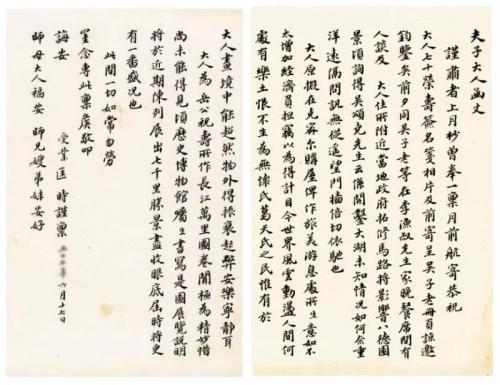 夫子大人函丈
謹肅者上月杪曾奉一稟月前航寄恭祝
大人七十榮壽簽名箋相片及前寄呈吳子老冊頁諒邀
鈞鑒矣前夕同吳子老等在李漁叔先生家晚餐席間有
人談及 大人住所附近當地政府拓修馬路將影響八德園
景頃詢得吳頌堯先生云係開鑿大湖未知情況如何念重
洋遠隔問訊無從遙望門牆倍切依馳也
大人原擬在克密爾購屋俾作旅美游息處所生意如不
太增加經濟負擔竊以為得計目今世界風雲動盪人間何
處有樂土恨不生為無懷氏葛天氏之民惟有於
大人畫境中能超然物外得振衰起弊安樂寧靜耳
大人為岳公祝壽所作長江萬里圖卷聞極為精妙惜
尚未能得見頃歷史博物館囑生書寫是圖展覽說明
將於近期陳列展出七千里勝景盡收眼底屆時將更
有一番盛況也
此間一切如常勿勞
罣念專此稟虔敬叩
誨安 受業 匡時謹稟 六月十七日
師母大人福安 師兄嫂弟妹安好